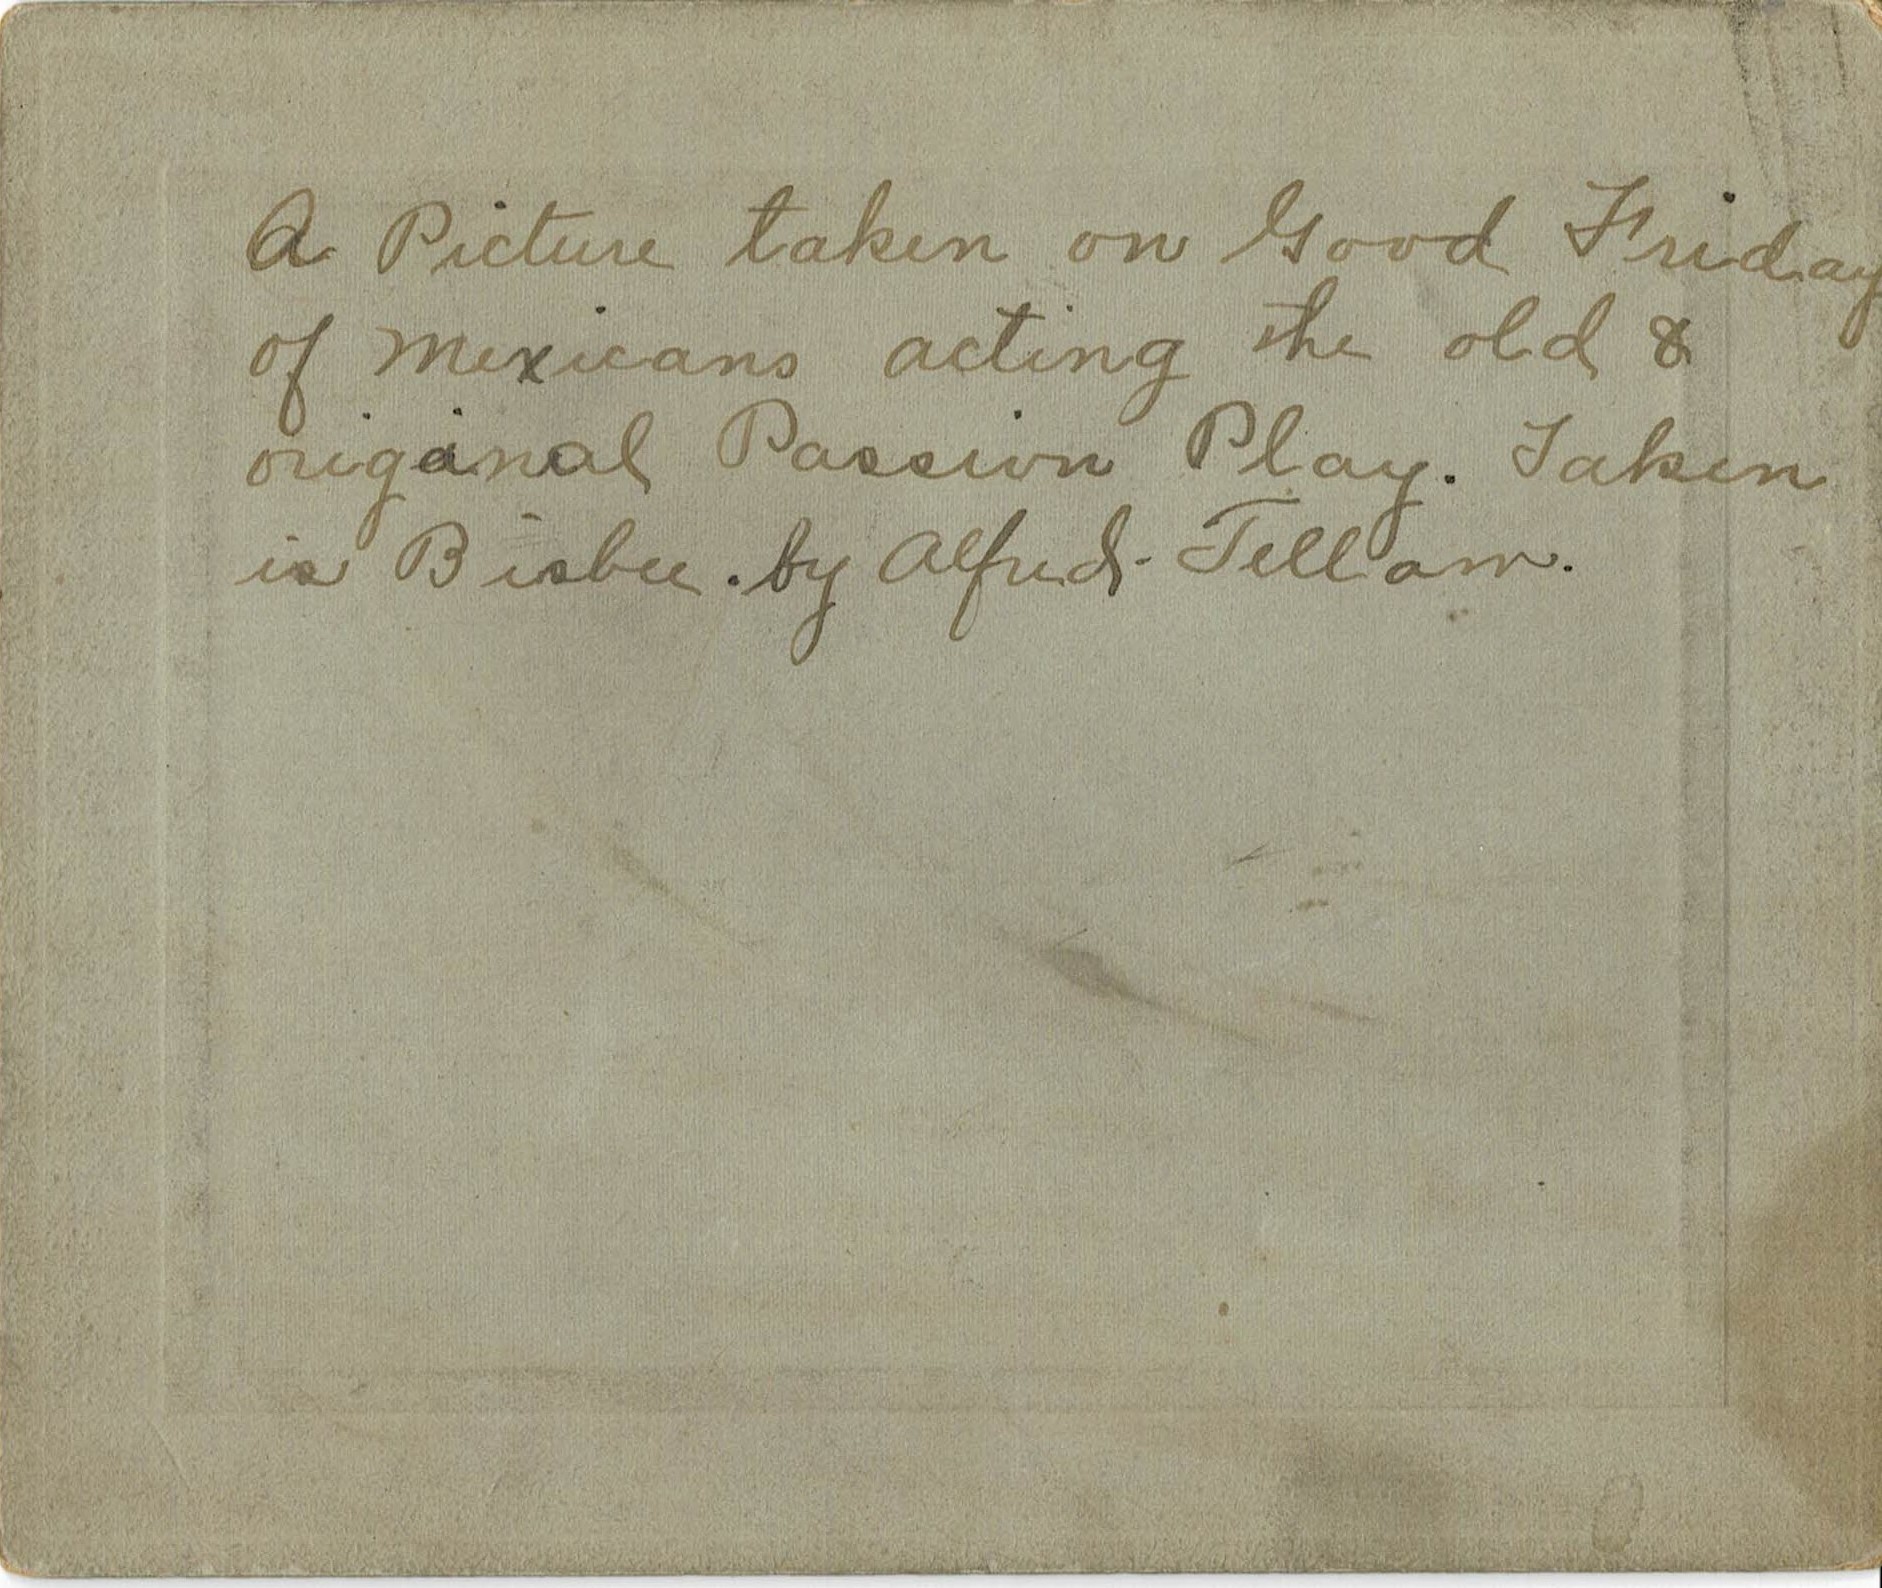 A Picture taken on Good Friday
of Mexicans acting the old &
original Passion Play. Taken
is Bisbee. by Alfred. Tellam.